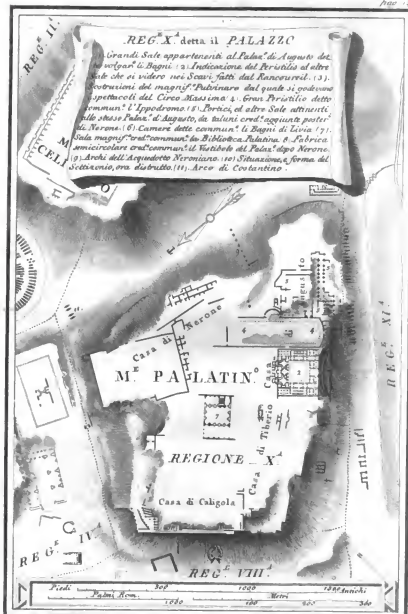 REG.E X.A detta il PALAZZO
Grandi Sale appartenenti al Palaz.o di Augusto det
volgar.e li Bagni. (2) Indicazione del Peristilio ed altre
Sale che si videro nei Scavi fatti dal Rancoureil. (3)
Costruzioni del magnif.o Pulvinare dal quale si godevano
spettacoli del Circo Massimo (4) Gran Peristilio detto
commun.e L'Ippodromo. (5) Portici, ed altre Sale attinenti
allo stesso Palaz.o d'Augusto, da taluni cred.e aggiunte poster.e
di Nerone. (6) Camere dette commun.e li Bagni di Livia (7)
Sala magnif.a cred.a commun.e la Biblioteca Palatina 8. Fabrica
semicircolare cred.a commun.e il Vestibolo del Palaz.o dopo Nerone.
(9) Archi dell'Acquedotto Neroniano. (10) Situazione, e forma del
Settizonio, ora distrutto. (11) Arco di Costantino.
REG.E II.A
M.E
CELIO
Casa di Nerone
Casa di Augusto
4
4
M.E PALATIN.O
REG.E XI.A
7
Casa di Tiberio
REGIONE X.A
Casa di Caligola
REG.E IV.A
REG.E VIII.A
Piedi 500 1000 1500 Antichi
Palmi Rom. Metri
1000 100 200 300